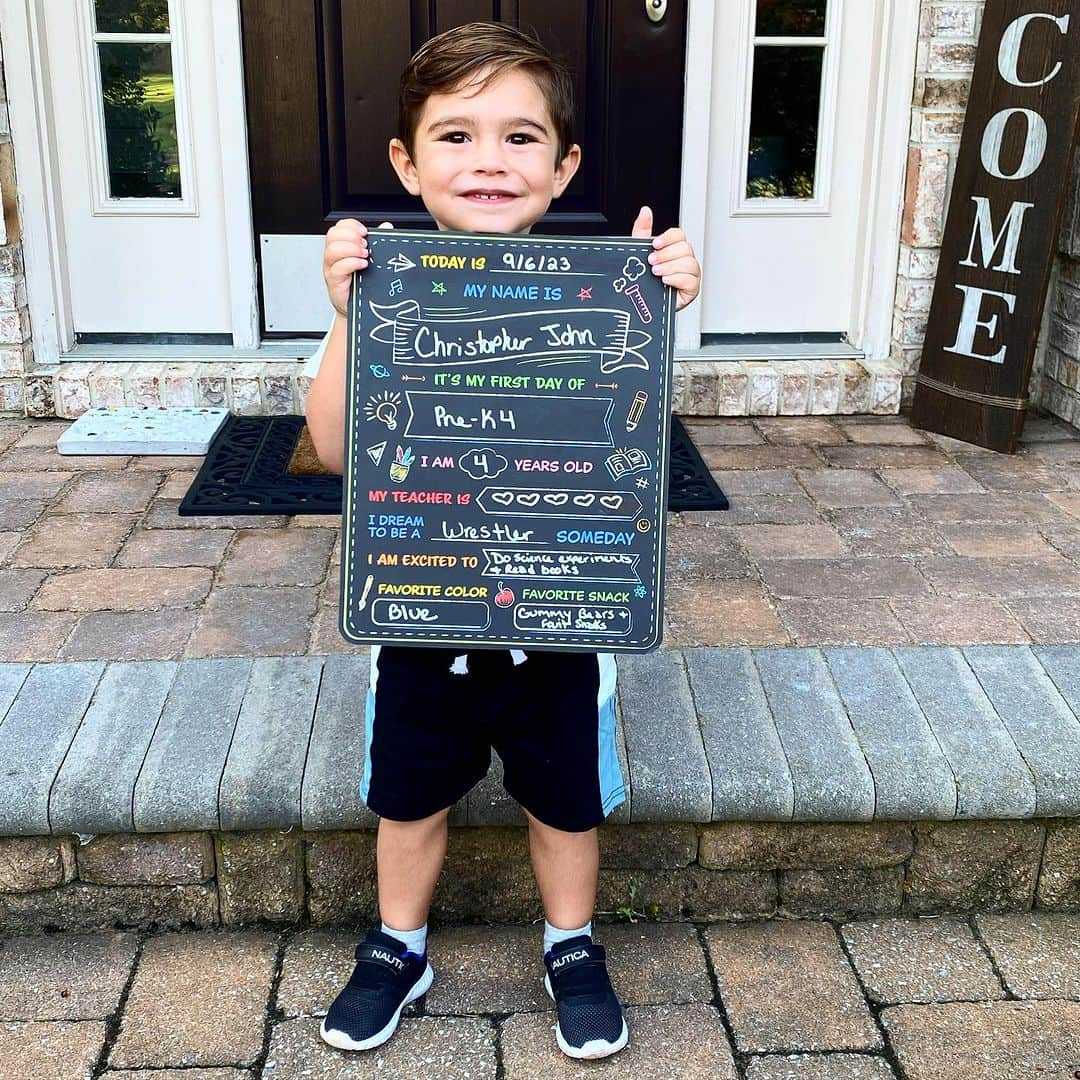 TODAY IS 9/6/23
MY NAME IS
Christopher John
IT'S MY FIRST DAY OF
Pre-K4
I AM 4 YEARS OLD
MY TEACHER IS
I DREAM TO BE A Wrestler SOMEDAY
I AM EXCITED TO Do science experiments
+ Read books
FAVORITE COLOR
Blue
FAVORITE SNACK
Gummy Bears +
Fruit Snacks
COME
NAUTI
AUTICA